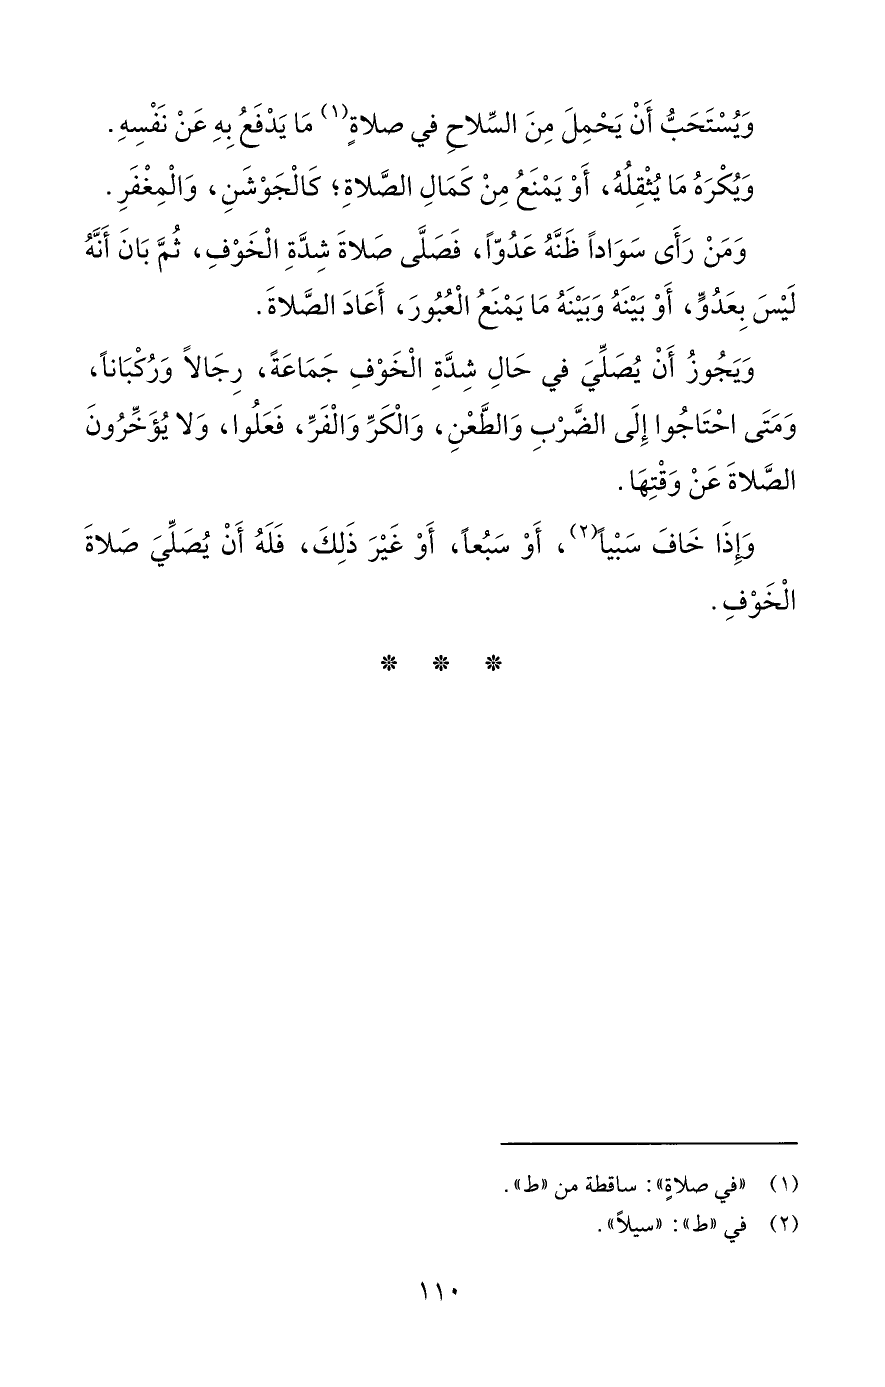 وَيُسْتَحَبُّ أَنْ يَحْمِلَ مِنَ السِّلاحِ في صلاةٍ(١) مَا يَدْفَعُ بِهِ عَنْ نَفْسِهِ.
وَيُكْرَهُ مَا يُثْقِلُهُ، أَوْ يَمْنَعُ مِنْ كَمَالِ الصَّلاةِ؛ كَالْجَوْشَنِ، وَالْمِغْفَرِ.
وَمَنْ رَأَى سَوَاداً ظَنَّهُ عَدُوّاً، فَصَلَّى صَلاةَ شِدَّةِ الْخَوْفِ، ثُمَّ بَانَ أَنَّهُ
لَيْسَ بِعَدُوٍّ، أَوْ بَيْنَهُ وَبَيْنَهُ مَا يَمْنَعُ الْعُبُورَ، أَعَادَ الصَّلاةَ.
وَيَجُوزُ أَنْ يُصَلِّيَ في حَالِ شِدَّةِ الْخَوْفِ جَمَاعَةً، رِجَالاً وَرُكْبَاناً،
وَمَتَى احْتَاجُوا إِلَى الضَّرْبِ وَالطَّعْنِ، وَالْكَرِّ وَالْفَرِّ، فَعَلُوا، وَلا يُؤَخِّرُونَ
الصَّلاةَ عَنْ وَقْتِهَا.
وَإِذَا خَافَ سَبْياً(٢)، أَوْ سَبُعاً، أَوْ غَيْرَ ذَلِكَ، فَلَهُ أَنْ يُصَلِّيَ صَلاةَ
الْخَوْفِ.
* * *
(١) «في صلاةٍ»: ساقطة من «ط».
(٢) في «ط»: «سيلاً».
١١٠